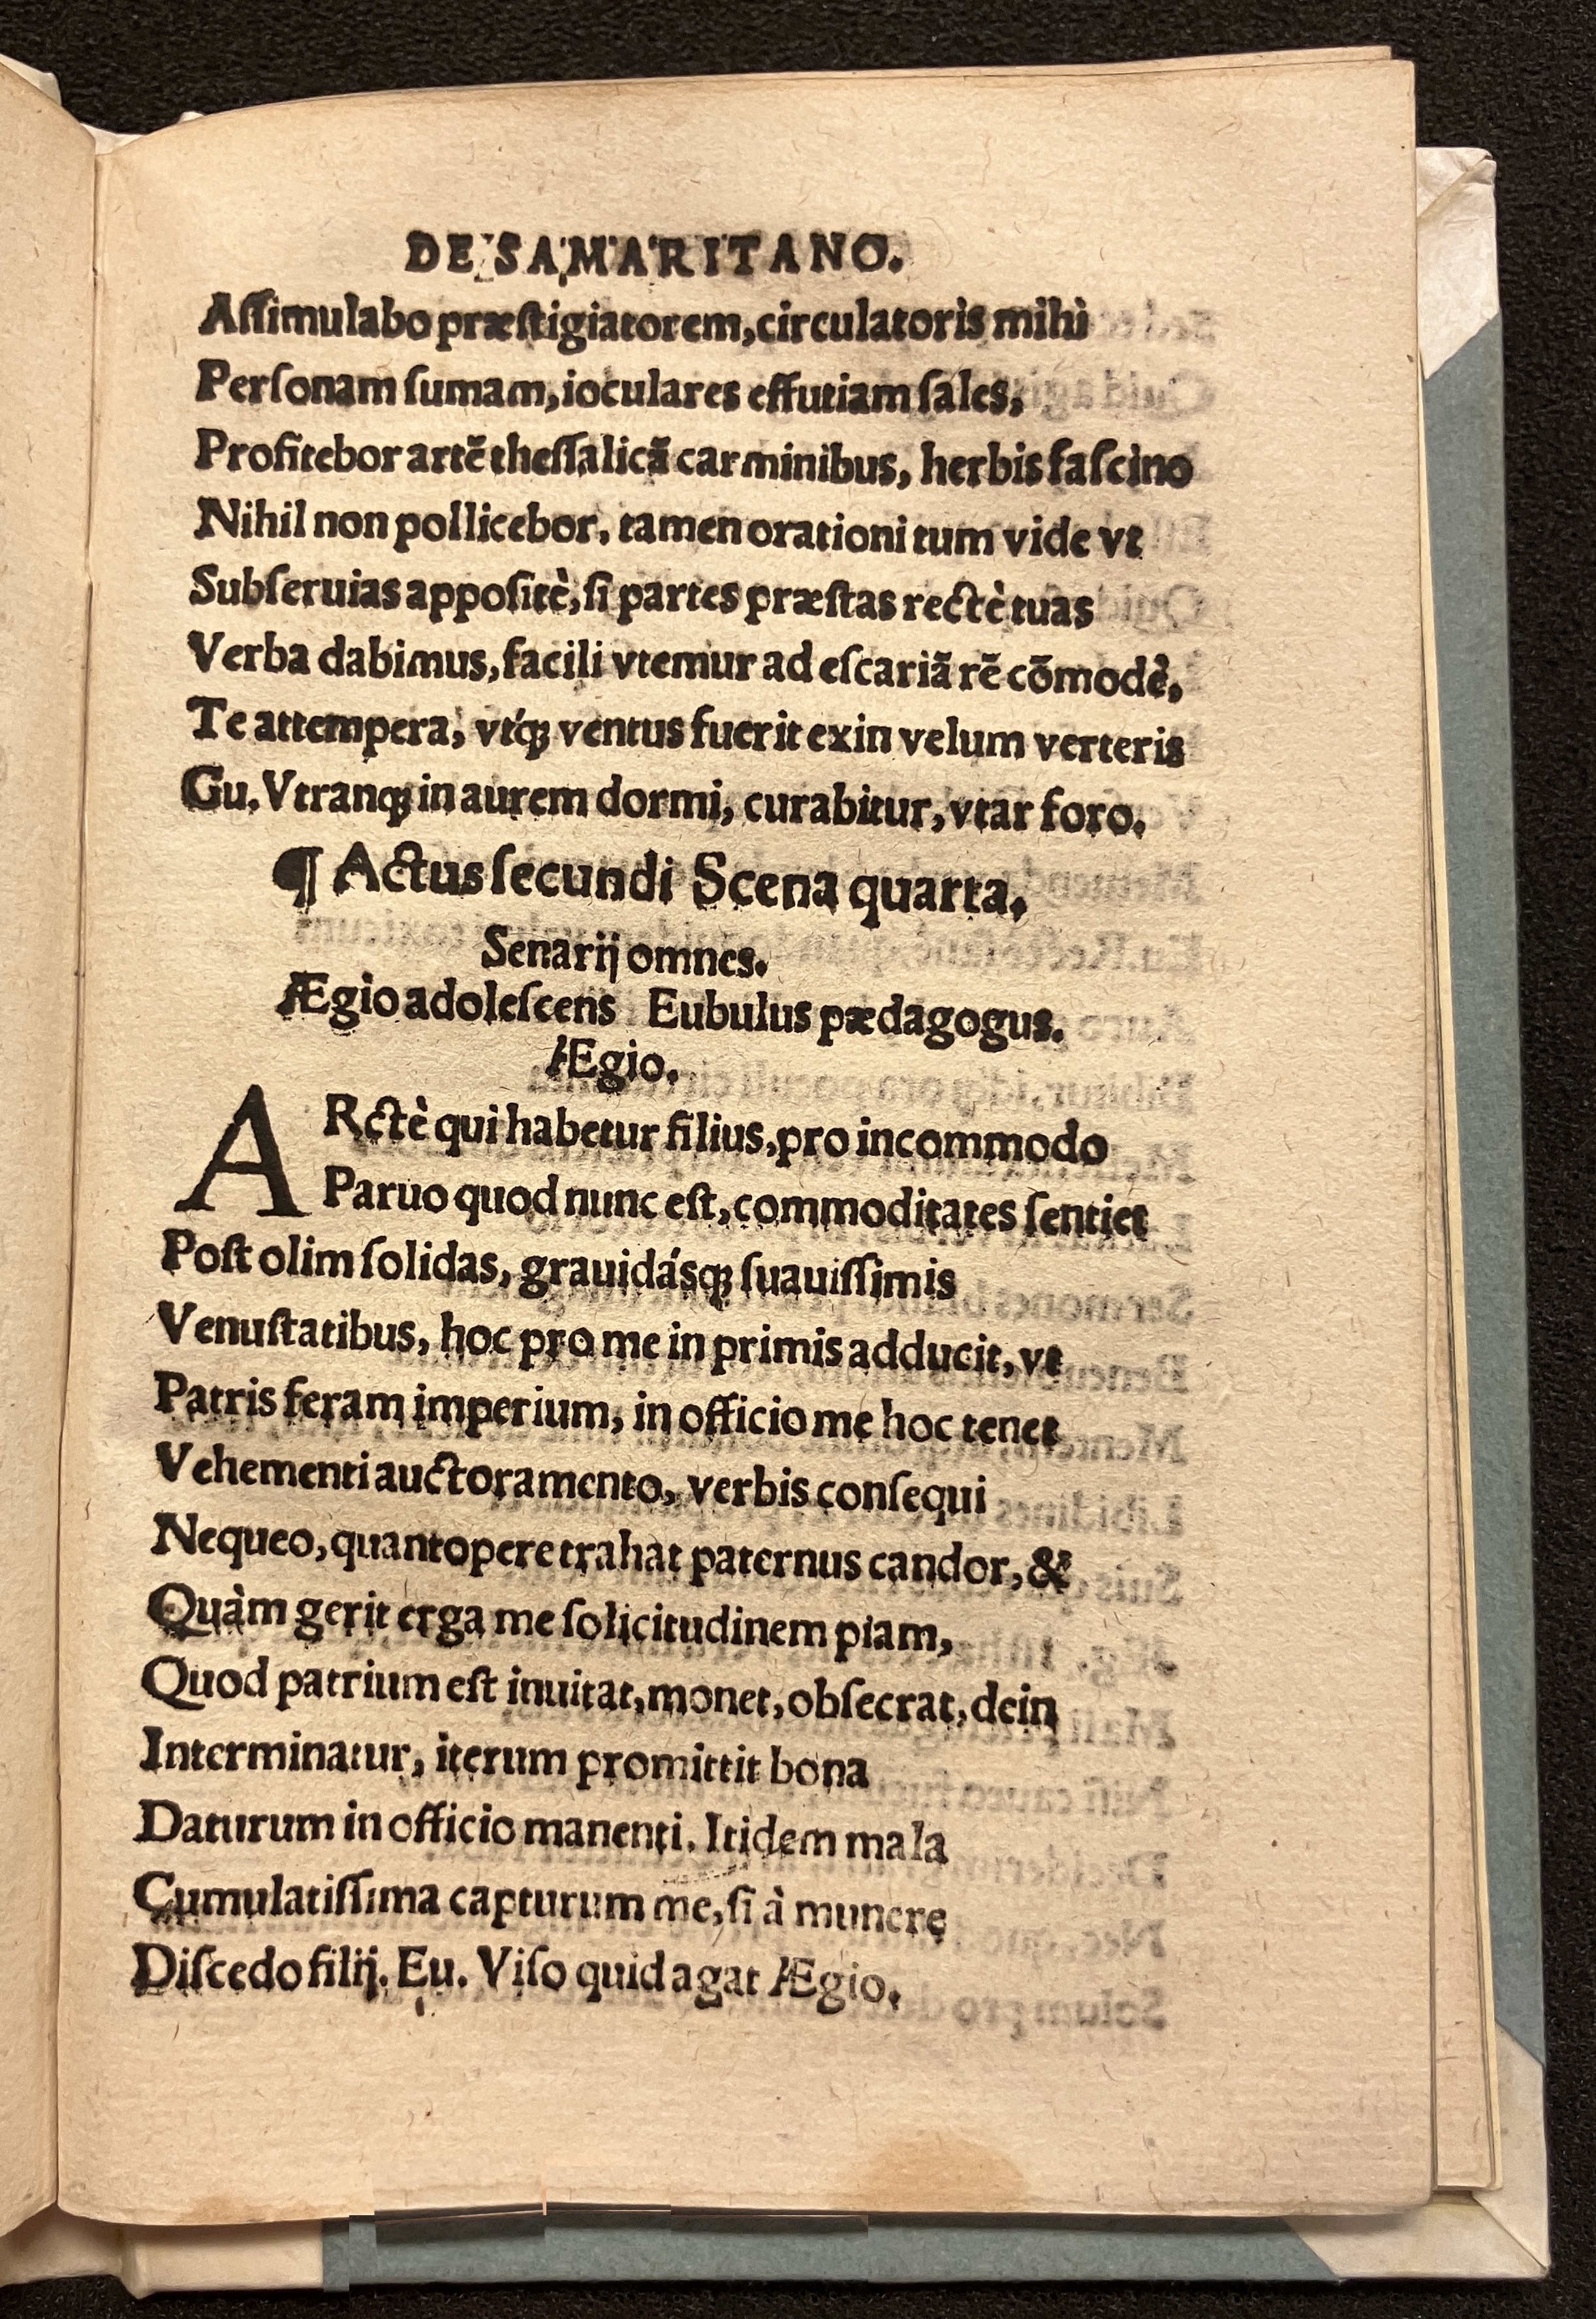 DE SAMARITANO.
Aſſimulabo præſtigiatorem, circulatoris mihi
Perſonam ſumam, ioculares effutiam ſales,
Profitebor artē theſſalicā carminibus, herbis faſcino
Nihil non pollicebor, tamen orationi tum vide vt
Subſeruias appoſitè, ſi partes præſtas rectè tuas
Verba dabimus, facili vtemur ad eſcariā rē cōmodè,
Te attempera, vtq́ꝫ ventus fuerit exin velum verteris
Gu. Vtranqꝫ in aurem dormi, curabitur, vtar foro.
¶ Actus ſecundi Scena quarta,
Senarij omnes.
Ægio adoleſcens Eubulus pædagogus.
Ægio.
ARctè qui habetur filius, pro incommodo
Paruo quod nunc eſt, commoditates ſentiet
Poſt olim ſolidas, grauidásqꝫ ſuauiſſimis
Venuſtatibus, hoc pro me in primis adducit, vt
Patris feram imperium, in officio me hoc tenet
Vehementi auctoramento, verbis conſequi
Nequeo, quantopere trahat paternus candor, &
Quàm gerit erga me ſolicitudinem piam,
Quod patrium eſt inuitat, monet, obſecrat, dein
Interminatur, iterum promittit bona
Daturum in officio manenti. Itidem mala
Cumulatiſſima capturum me, ſi à munere
Diſcedo filij. Eu. Viſo quid agat Ægio.